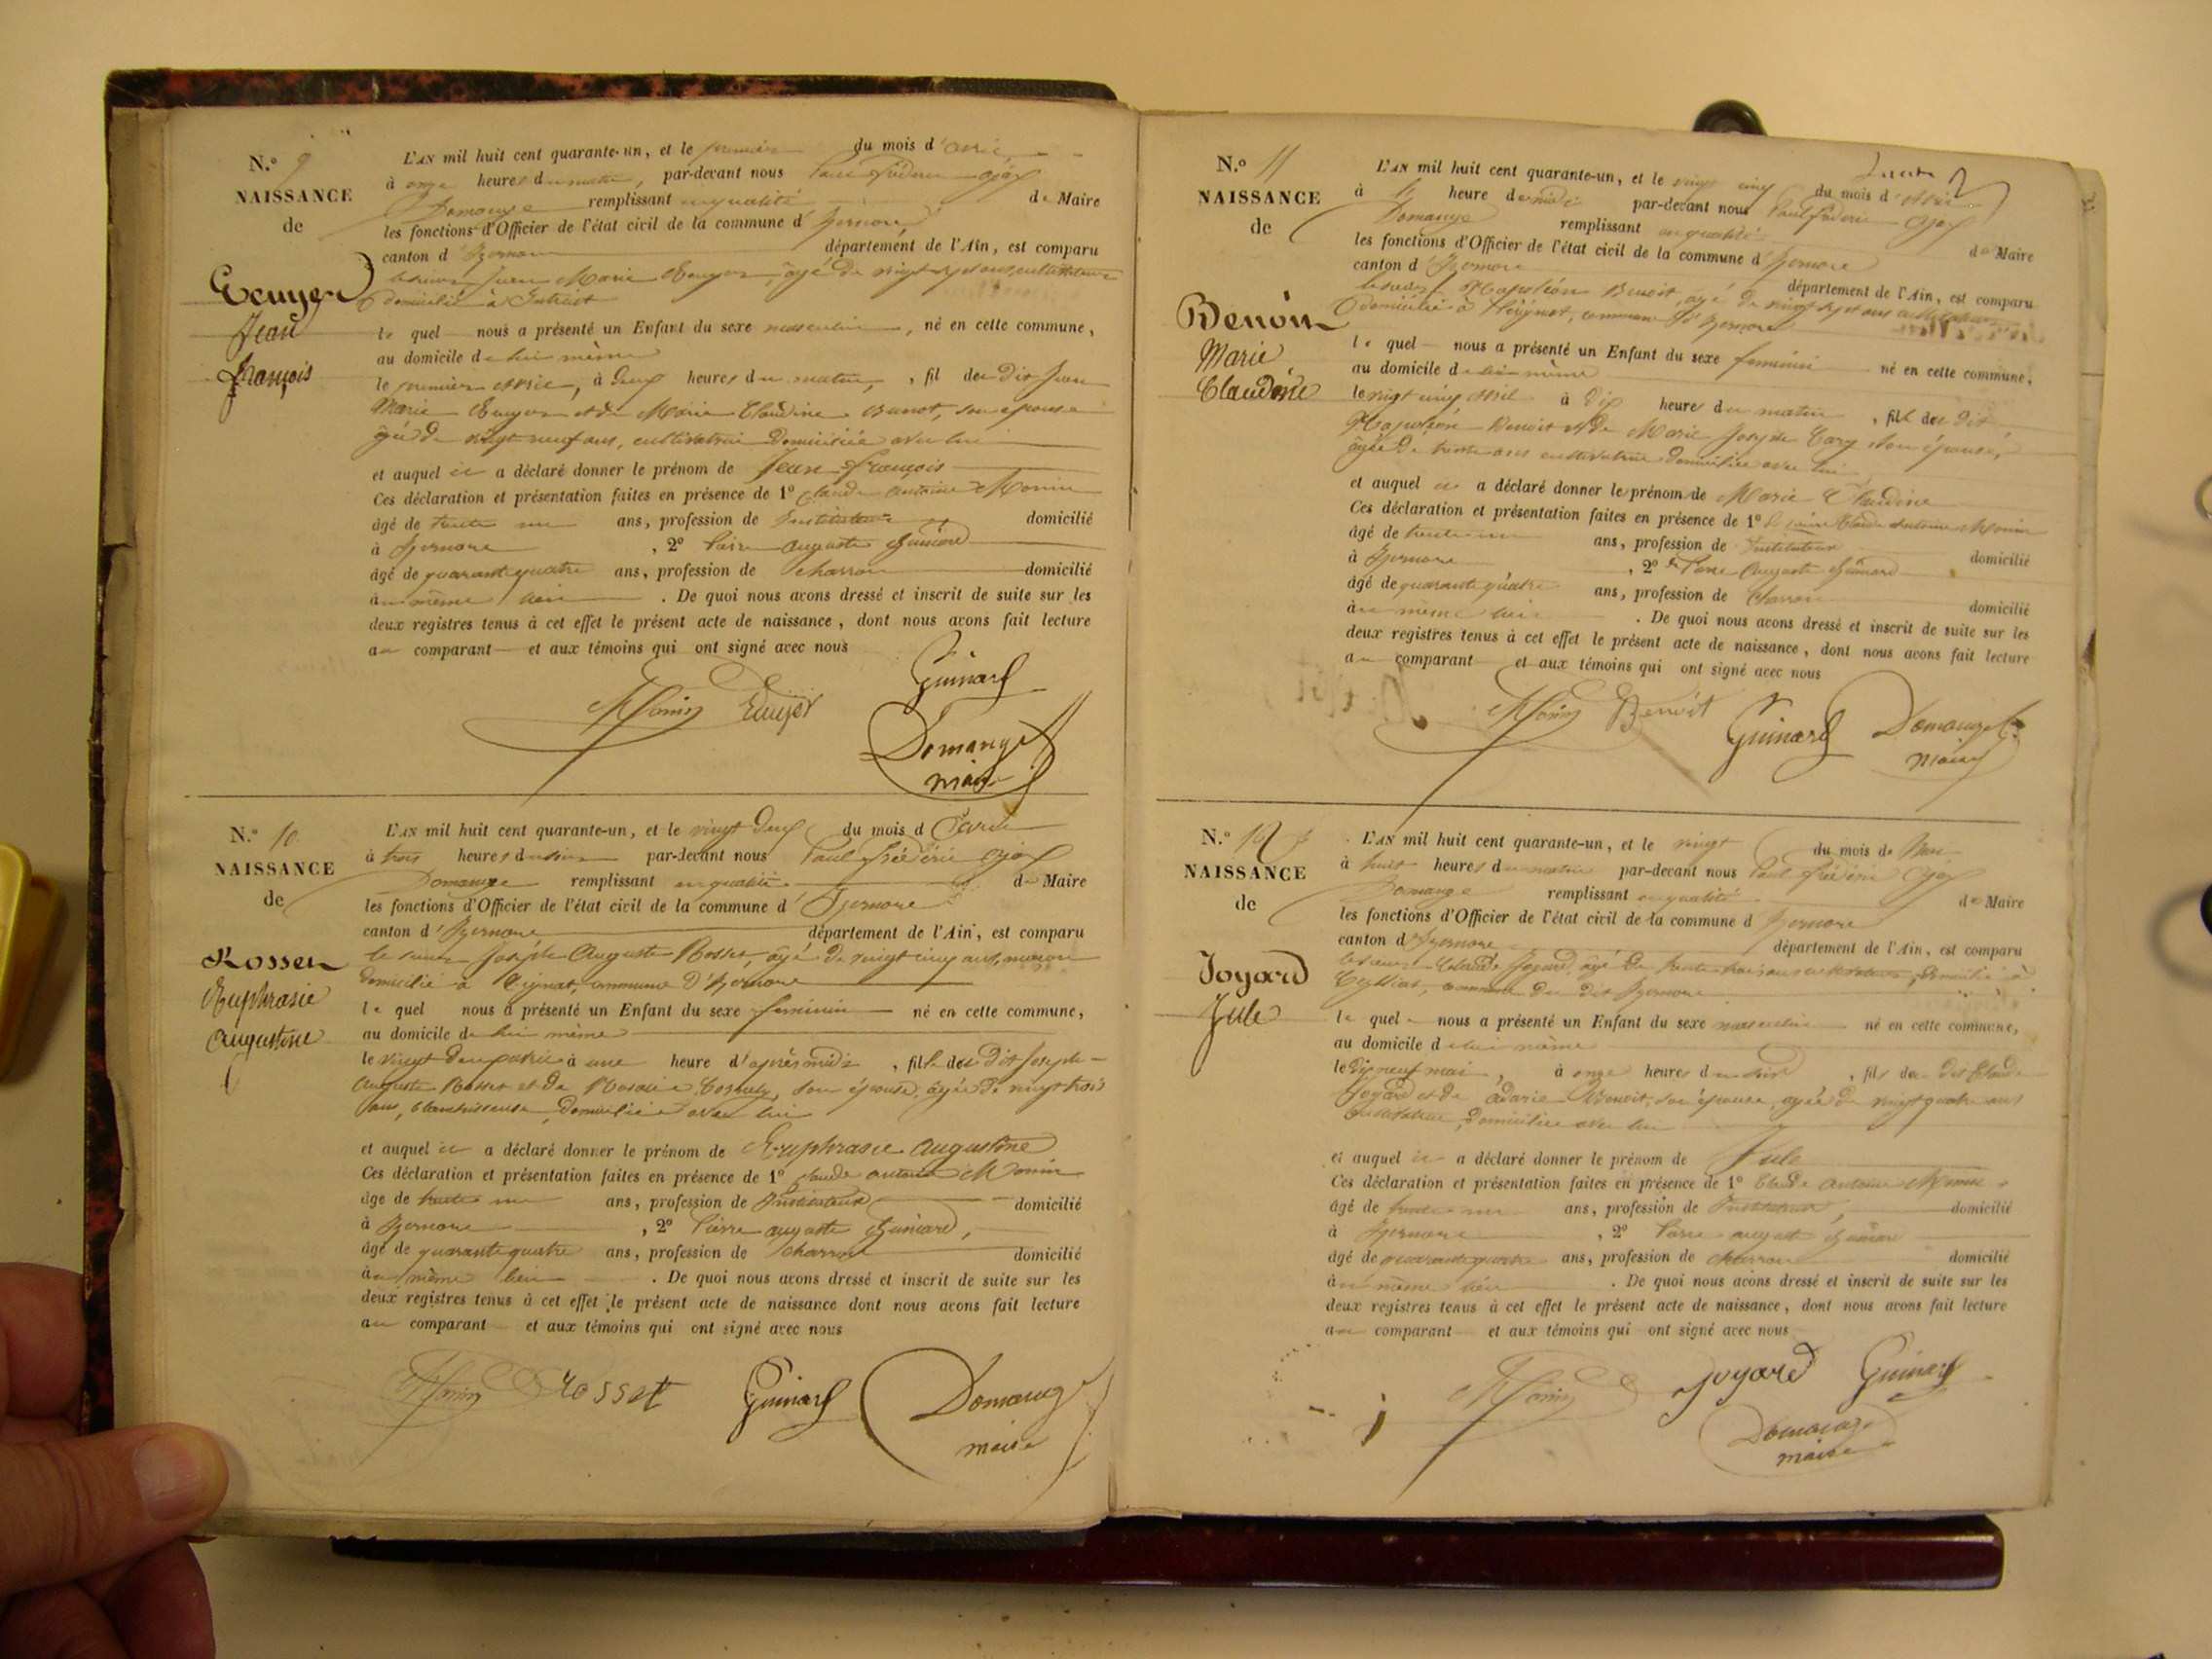 N.º 9
NAISSANCE
de
Ecuyer
Jean
François
L'AN mil huit cent quarante-un, et le premier du mois d'avril
à onze heures du matin, par-devant nous Paul Frédéric
Domange remplissant en qualité de Maire
les fonctions d'Officier de l'état civil de la commune d'Izernore
canton d'Izernore département de l'Ain, est comparu
le sieur Jean Marie Ecuyer, âgé de vingt sept ans, cultivateur
domicilié à Intriat
le quel nous a présenté un Enfant du sexe masculin, né en cette commune,
au domicile de lui même
le premier avril, à deux heures du matin, fil du dit Jean
Marie Ecuyer et de Marie Claudine, son épouse
âgée de vingt neuf ans, cultivatrice domiciliée avec lui
et auquel il a déclaré donner le prénom de Jean François
Ces déclaration et présentation faites en présence de 1º Claude Antoine Monin
âgé de trente un ans, profession de Instituteur domicilié
à Izernore, 2º Pierre Auguste Guinard
âgé de quarante quatre ans, profession de charron domicilié
au même lieu. De quoi nous avons dressé et inscrit de suite sur les
deux registres tenus à cet effet le présent acte de naissance, dont nous avons fait lecture
au comparant et aux témoins qui ont signé avec nous
Guinard
Monin Ecuyer
Domange
maire
N.º 10
NAISSANCE
de
Rosset
Euphrasie
Augustine
L'AN mil huit cent quarante-un, et le vingt deux du mois d'avril
à trois heures du soir par-devant nous Paul Frédéric
Domange remplissant en qualité de Maire
les fonctions d'Officier de l'état civil de la commune d'Izernore
canton d'Izernore département de l'Ain, est comparu
le sieur Joseph Auguste Rosset, âgé de vingt cinq ans, maçon
domicilié à Tignat, commune d'Izernore
le quel nous a présenté un Enfant du sexe feminin né en cette commune,
au domicile de lui même
le vingt deux avril à une heure d'après midi, fille du dit Joseph
Auguste Rosset et de son épouse, âgée de vingt trois
ans, blanchisseuse, domiciliée avec lui
et auquel il a déclaré donner le prénom de Euphrasie Augustine
Ces déclaration et présentation faites en présence de 1º Claude Antoine Monin
âge de trente un ans, profession de Instituteur domicilié
à Izernore, 2º Pierre Auguste Guinard,
âgé de quarante quatre ans, profession de charron domicilié
au même lieu. De quoi nous avons dressé et inscrit de suite sur les
deux registres tenus à cet effet le présent acte de naissance dont nous avons fait lecture
au comparant et aux témoins qui ont signé avec nous
Monin Rosset Guinard Domange
maire
N.º 11
NAISSANCE
de
Benoit
Marie
Claudine
L'AN mil huit cent quarante-un, et le vingt cinq du mois d'avril
à heure de midi par-devant nous Paul Frédéric
Domange remplissant en qualité de Maire
les fonctions d'Officier de l'état civil de la commune d'Izernore
canton d'Izernore département de l'Ain, est comparu
le sieur Napoléon Benoit, âgé de vingt sept ans cultivateur
domicilié à Tignat, commune d'Izernore
le quel nous a présenté un Enfant du sexe feminin né en cette commune,
au domicile de lui même
le vingt cinq avril à dix heures du matin, fille du dit
Napoléon Benoit et de Marie Josephte son épouse,
âgée de trente ans cultivatrice domiciliée avec lui
et auquel il a déclaré donner le prénom de Marie Claudine
Ces déclaration et présentation faites en présence de 1º Claude Antoine Monin
âgé de trente un ans, profession de Instituteur domicilié
à Izernore, 2º Pierre Auguste Guinard
âgé de quarante quatre ans, profession de Charron domicilié
au même lieu. De quoi nous avons dressé et inscrit de suite sur les
deux registres tenus à cet effet le présent acte de naissance, dont nous avons fait lecture
au comparant et aux témoins qui ont signé avec nous
Monin Benoit Guinard Domange
maire
N.º 12
NAISSANCE
de
Joyard
Jule
L'AN mil huit cent quarante-un, et le vingt du mois de Mai
à huit heures du matin par-devant nous Paul Frédéric
Domange remplissant en qualité de Maire
les fonctions d'Officier de l'état civil de la commune d'Izernore
canton d'Izernore département de l'Ain, est comparu
le sieur Claude Joyard, âgé de trente trois ans cultivateur, domicilié à
Ceyssiat, commune du dit Izernore
le quel nous a présenté un Enfant du sexe masculin né en cette commune,
au domicile de lui même
le dix neuf mai, à onze heures du soir, fils du dit Claude
Joyard et de Marie Benoit, son épouse, âgée de vingt quatre ans
cultivatrice, domiciliée avec lui
et auquel il a déclaré donner le prénom de Jule
Ces déclaration et présentation faites en présence de 1º Claude Antoine Monin
âgé de trente un ans, profession de Instituteur, domicilié
à Izernore, 2º Pierre Auguste Guinard
âgé de quarante quatre ans, profession de charron domicilié
au même lieu. De quoi nous avons dressé et inscrit de suite sur les
deux registres tenus à cet effet le présent acte de naissance, dont nous avons fait lecture
au comparant et aux témoins qui ont signé avec nous
Monin Joyard Guinard
Domange
maire